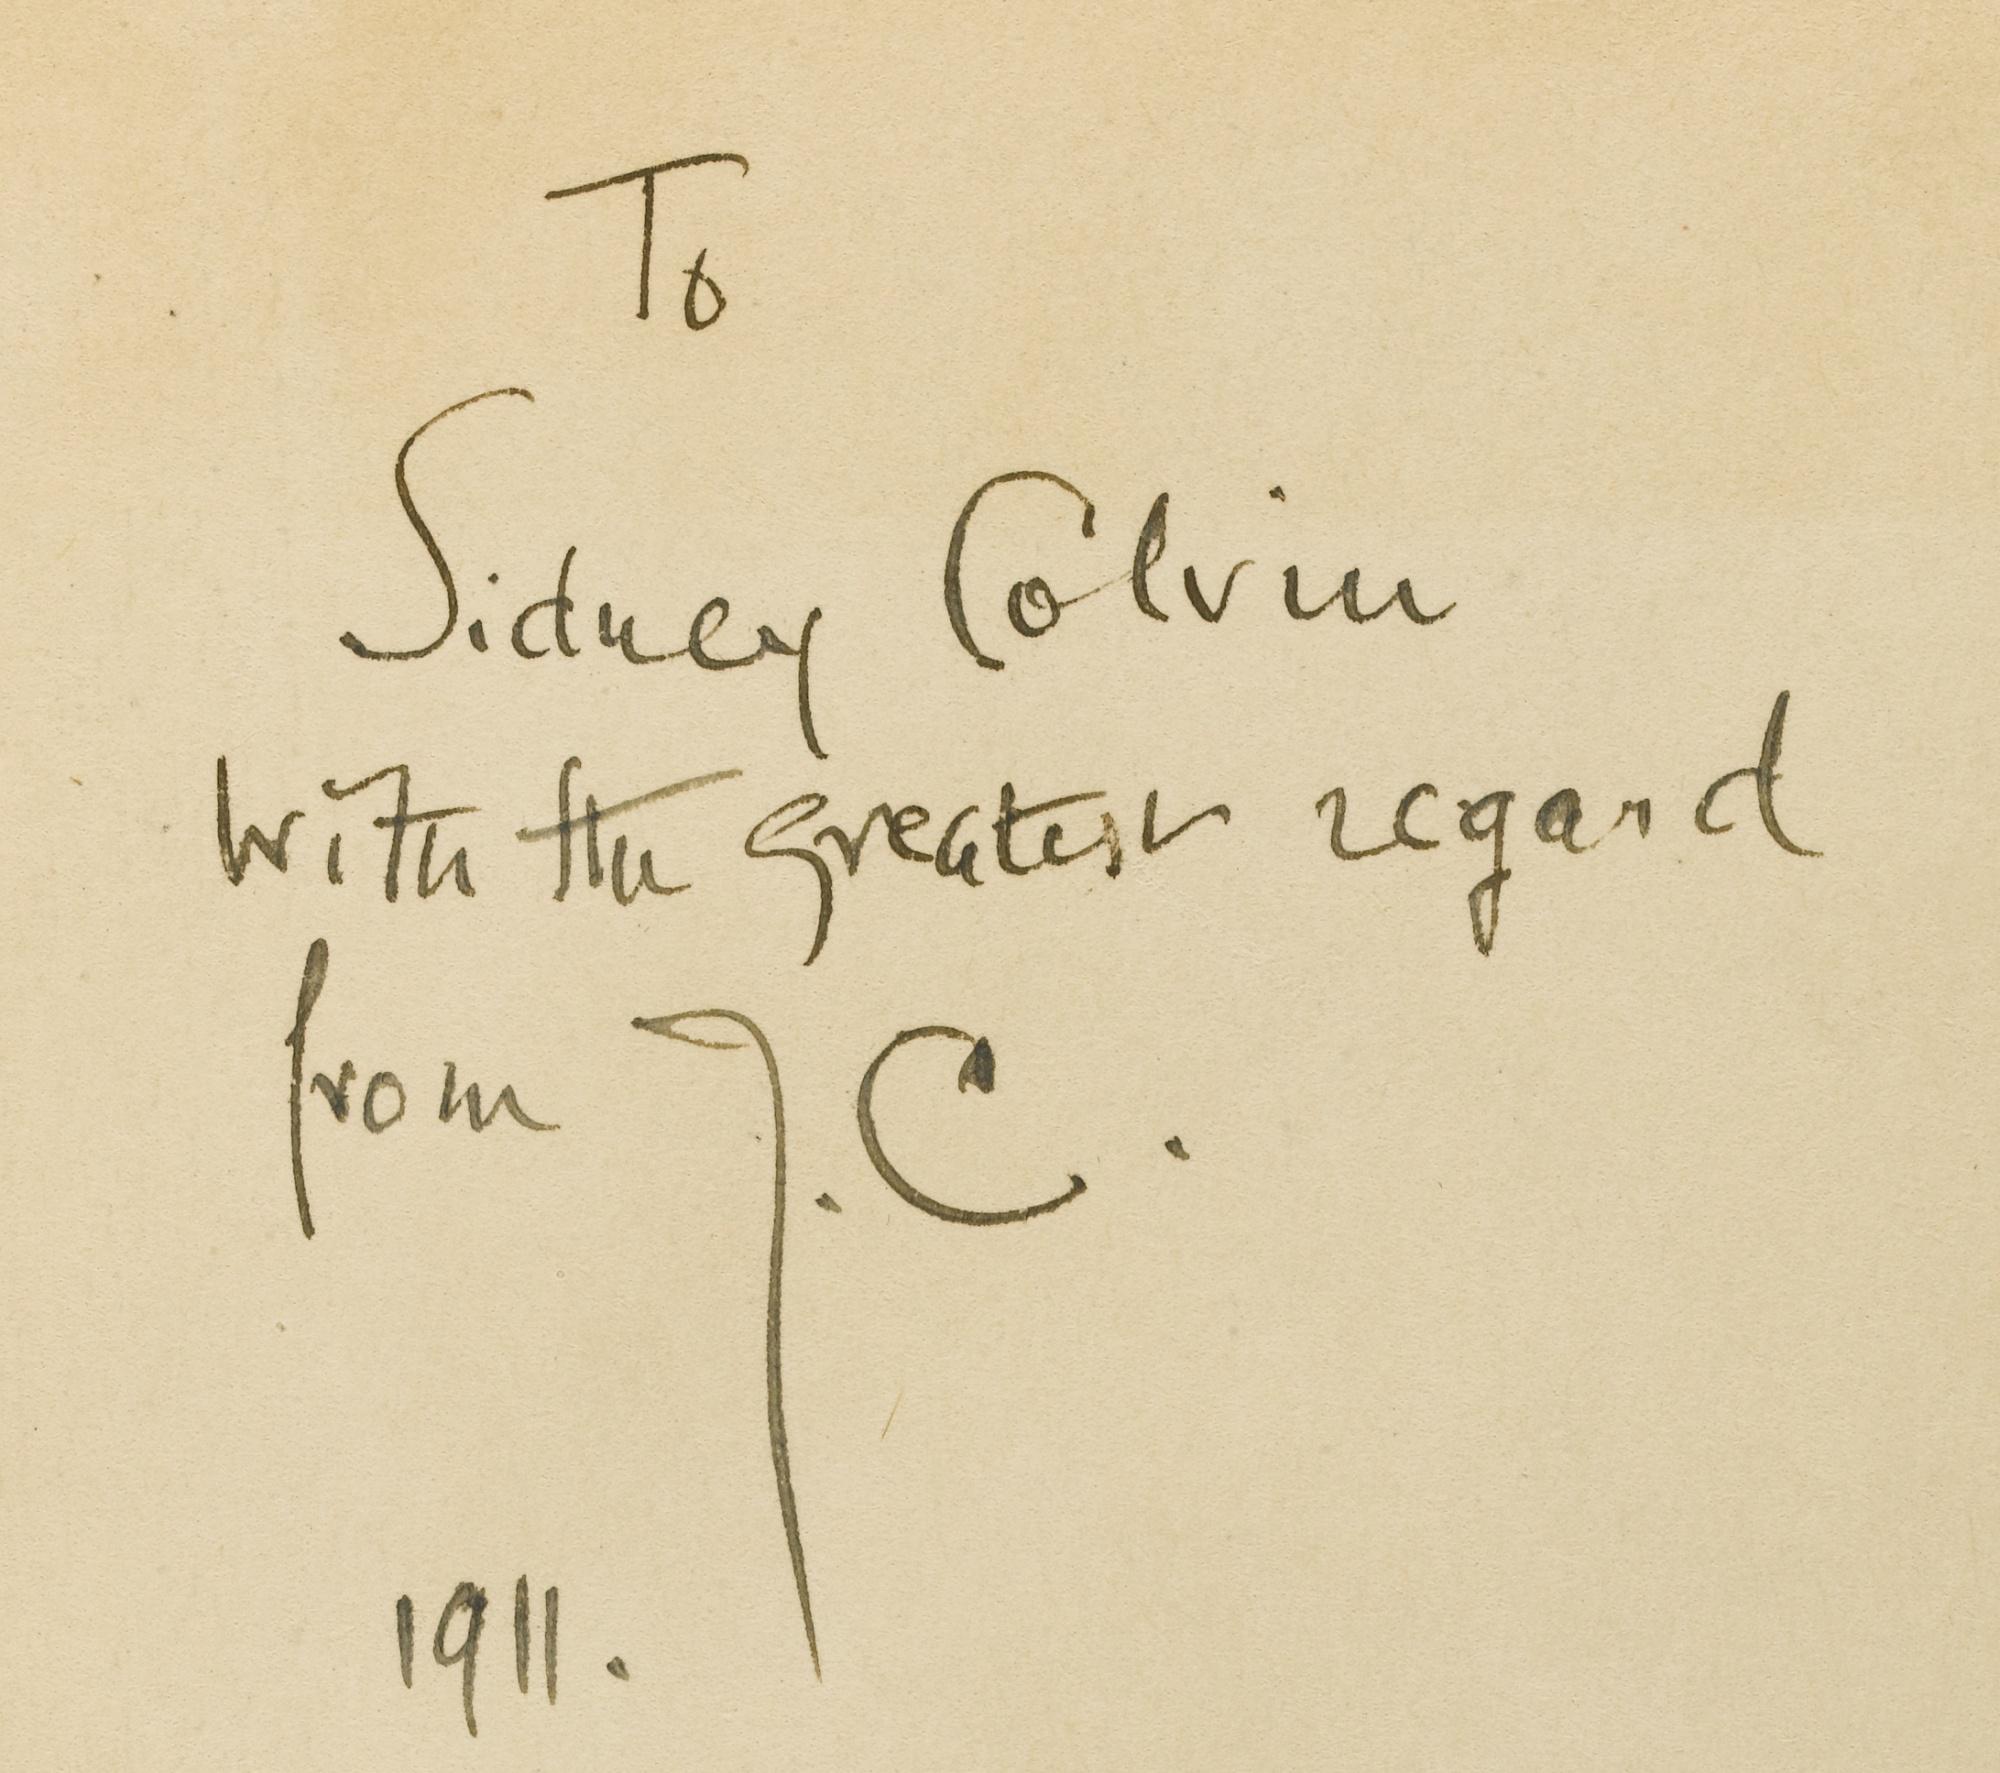 To
Sidney Colvin
with the greatest regard
from J. C.
1911.